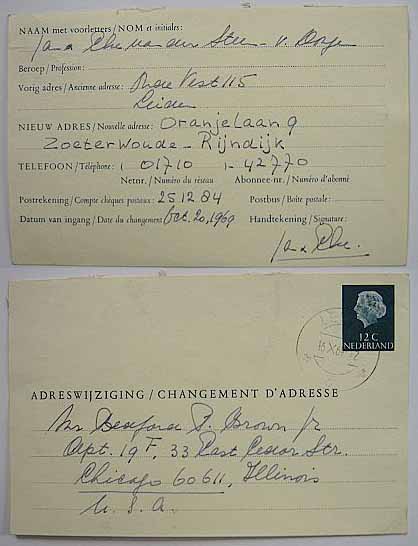 NAAM met voorletters / NOM et initiales:
Jan & Elie van der Steen - v.
Beroep / Profession:
Vorig adres / Ancienne adresse: Vest 115
Leiden
NIEUW ADRES / Nouvelle adresse: Oranjelaan 9
Zoeterwoude - Rijndijk
TELEFOON / Téléphone: ( 01710 ) - 42770
Netnr. / Numéro du réseau Abonnee-nr. / Numéro d'abonné
Postrekening / Compte chèques postaux: 251284 Postbus / Boîte postale:
Datum van ingang / Date du changement: Oct. 20, 1969 Handtekening / Signature:
Jan & Elie.
12 C
NEDERLAND
ADRESWIJZIGING / CHANGEMENT D'ADRESSE
Mr Bedford P. Brown Jr
Apt. 19F, 33 East Cedar Str.
Chicago 60611, Illinois
U.S.A.